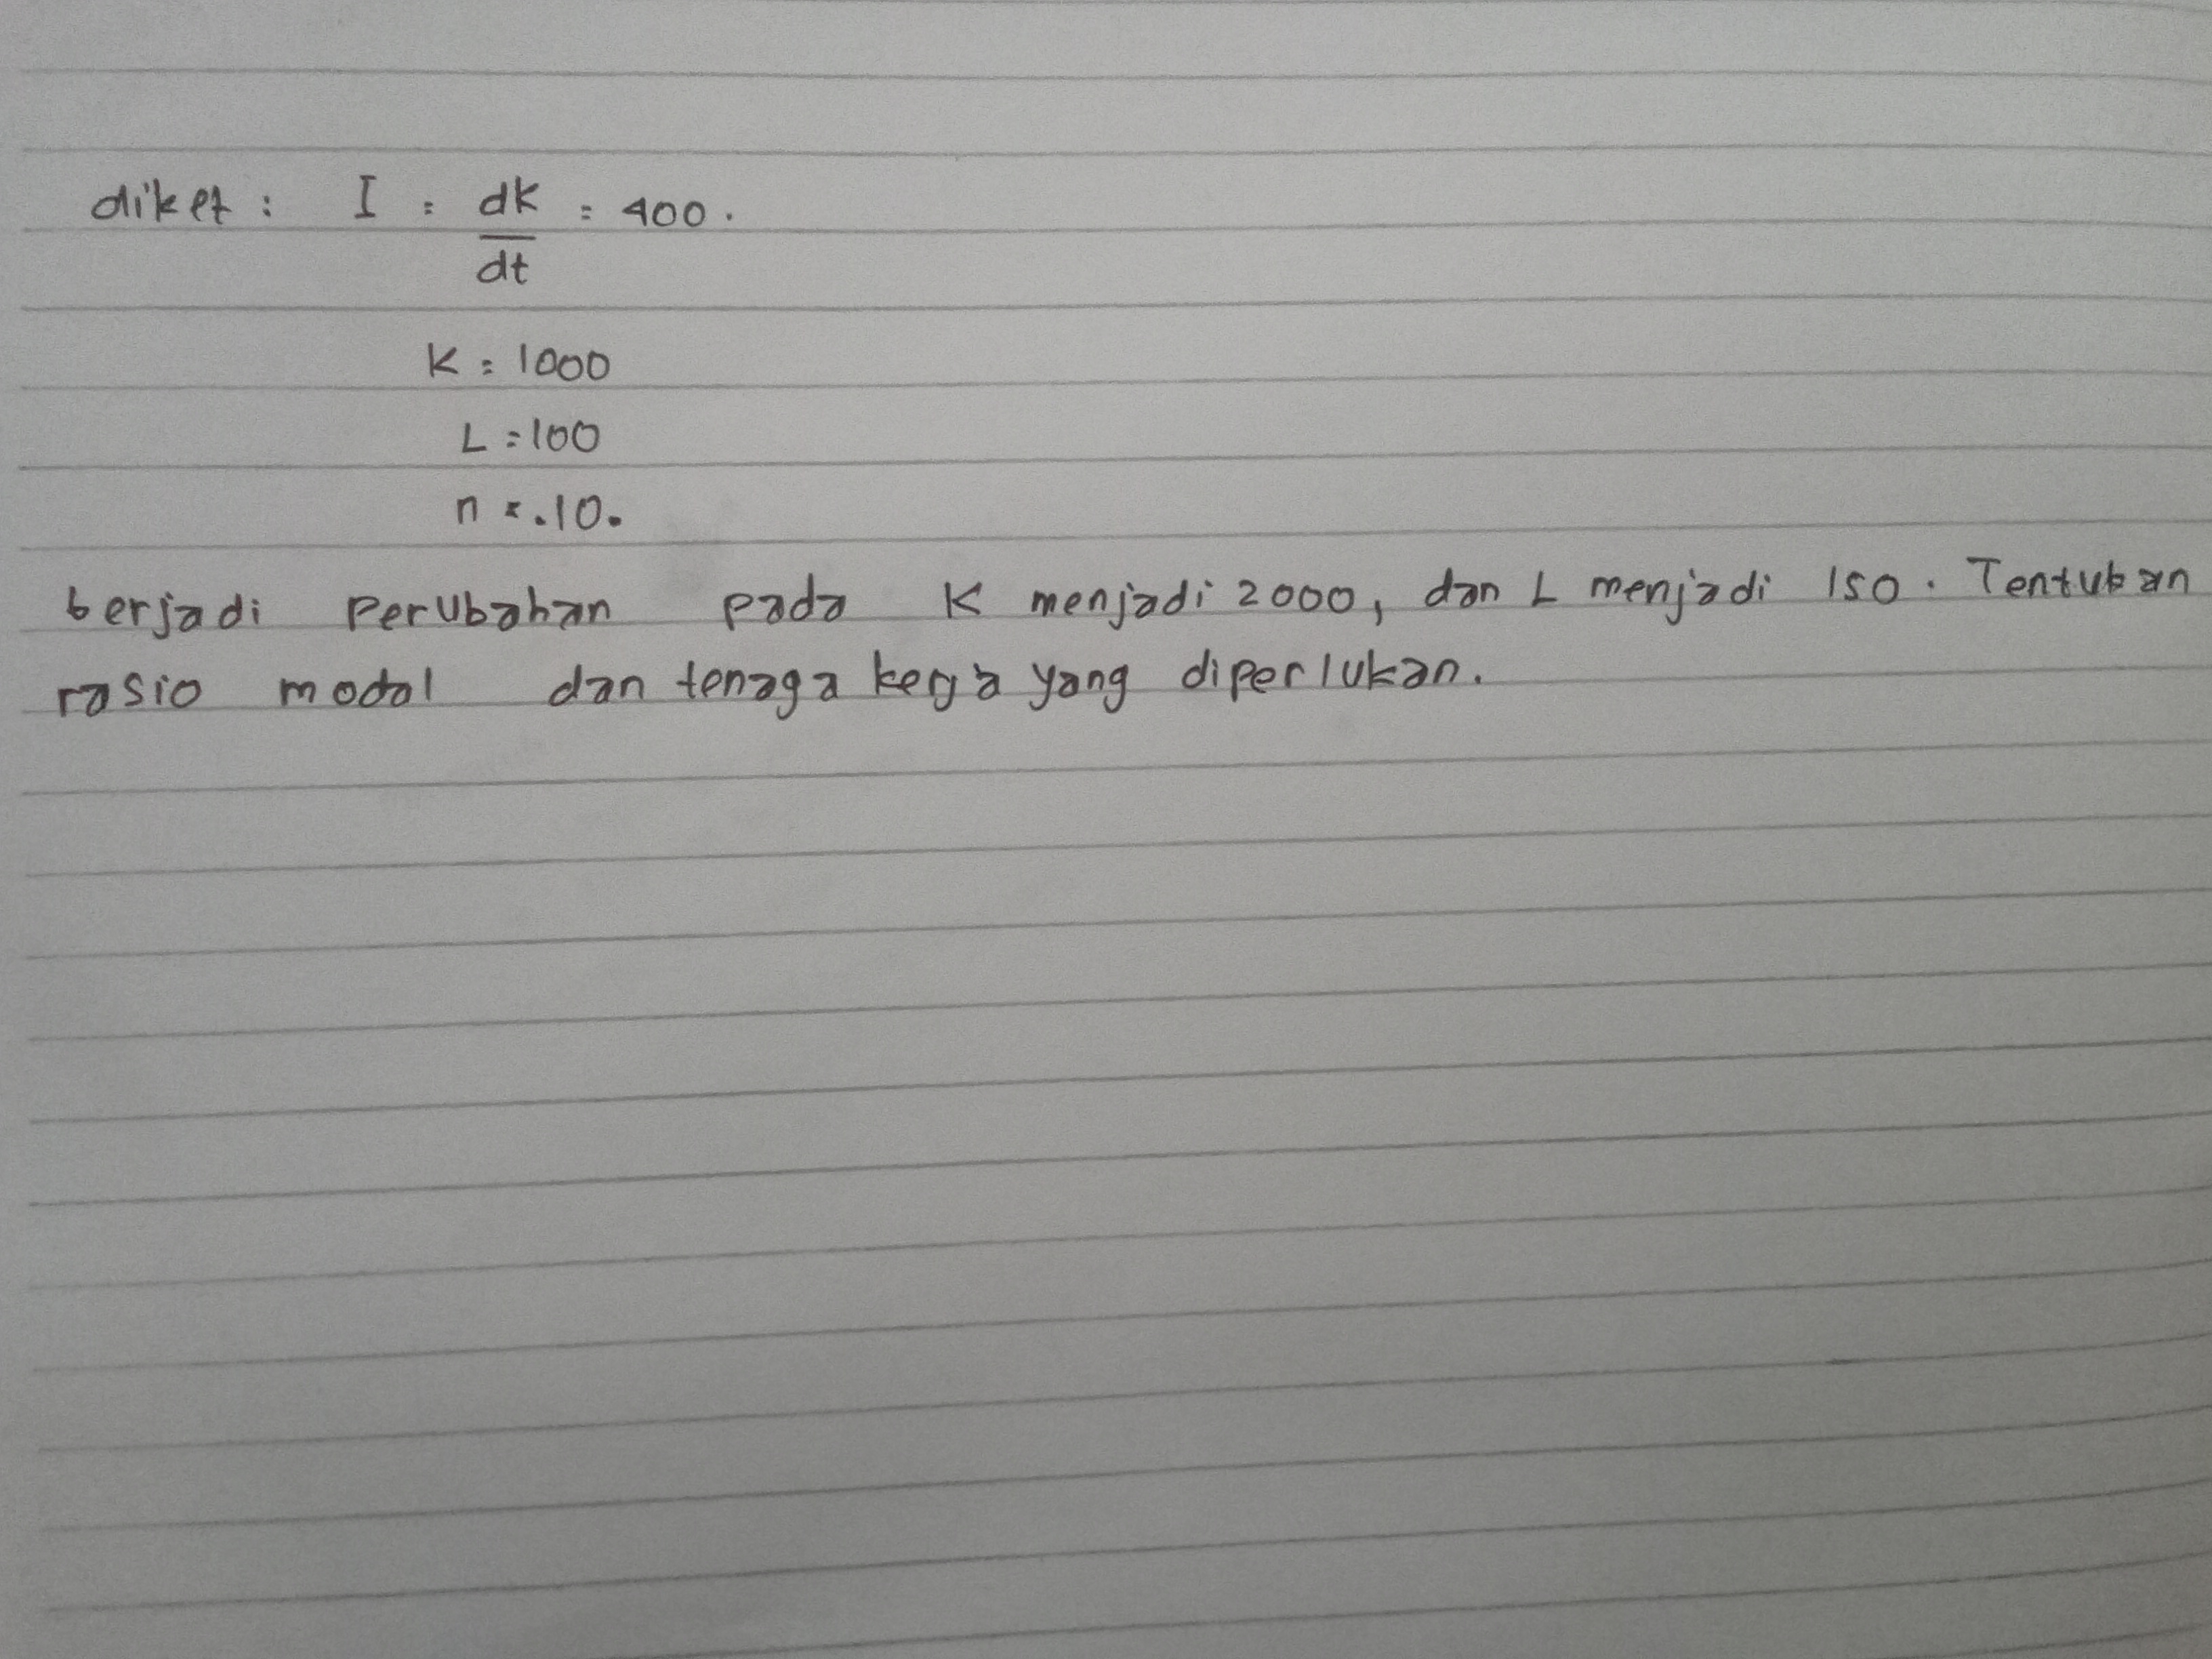 diket : I : dk/dt = 400 .
K : 1000
L = 100
n = .10.
berjadi perubahan pada K menjadi 2000, dan L menjadi 150 . Tentukan
rasio modal dan tenaga kerja yang diperlukan.